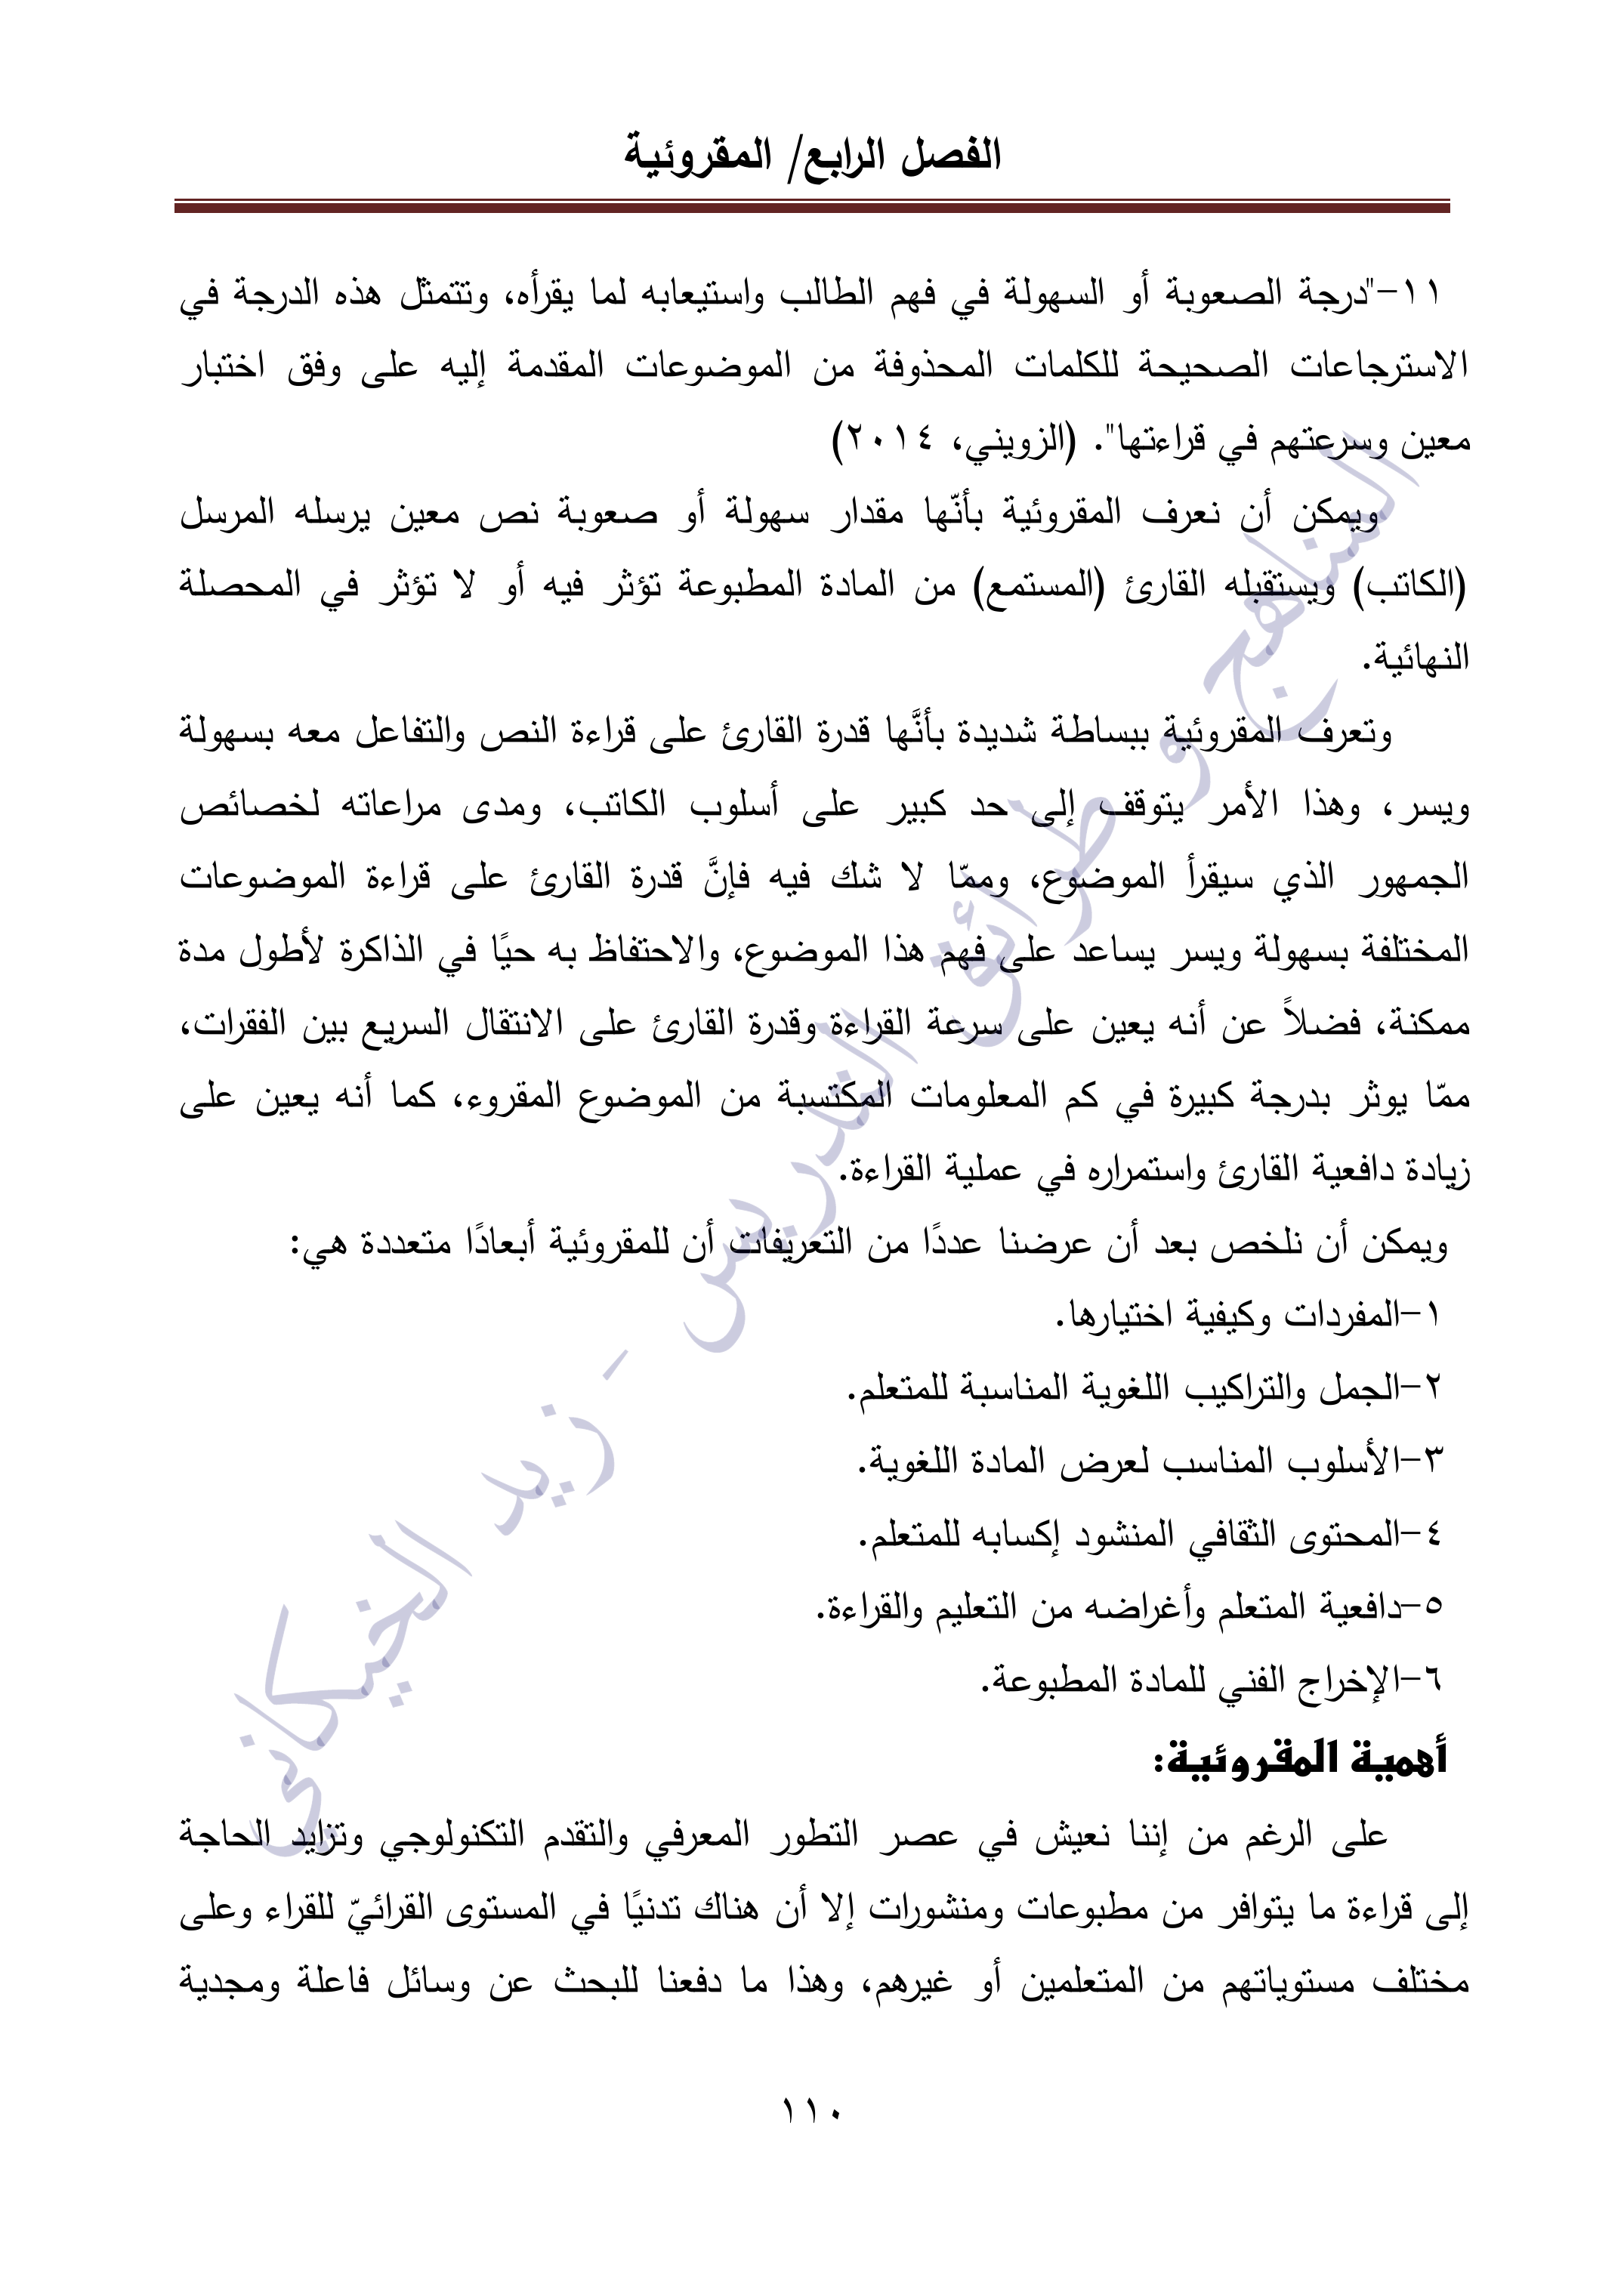 الفصل الرابع/ المقروئية
١١-"درجة الصعوبة أو السهولة في فهم الطالب واستيعابه لما يقرأه، وتتمثل هذه الدرجة في
الاسترجاعات الصحيحة للكلمات المحذوفة من الموضوعات المقدمة إليه على وفق اختبار
معين وسرعتهم في قراءتها". (الزويني، ٢٠١٤)
ويمكن أن نعرف المقروئية بأنّها مقدار سهولة أو صعوبة نص معين يرسله المرسل
(الكاتب) ويستقبله القارئ (المستمع) من المادة المطبوعة تؤثر فيه أو لا تؤثر في المحصلة
النهائية.
وتعرف المقروئية ببساطة شديدة بأنَّها قدرة القارئ على قراءة النص والتفاعل معه بسهولة
ويسر، وهذا الأمر يتوقف إلى حد كبير على أسلوب الكاتب، ومدى مراعاته لخصائص
الجمهور الذي سيقرأ الموضوع، وممّا لا شك فيه فإنَّ قدرة القارئ على قراءة الموضوعات
المختلفة بسهولة ويسر يساعد على فهم هذا الموضوع، والاحتفاظ به حيًا في الذاكرة لأطول مدة
ممكنة، فضلاً عن أنه يعين على سرعة القراءة وقدرة القارئ على الانتقال السريع بين الفقرات،
ممّا يوثر بدرجة كبيرة في كم المعلومات المكتسبة من الموضوع المقروء، كما أنه يعين على
زيادة دافعية القارئ واستمراره في عملية القراءة.
ويمكن أن نلخص بعد أن عرضنا عددًا من التعريفات أن للمقروئية أبعادًا متعددة هي:
١-المفردات وكيفية اختيارها.
٢-الجمل والتراكيب اللغوية المناسبة للمتعلم.
٣-الأسلوب المناسب لعرض المادة اللغوية.
٤-المحتوى الثقافي المنشود إكسابه للمتعلم.
٥-دافعية المتعلم وأغراضه من التعليم والقراءة.
٦-الإخراج الفني للمادة المطبوعة.
أهمية المقروئية:
على الرغم من إننا نعيش في عصر التطور المعرفي والتقدم التكنولوجي وتزايد الحاجة
إلى قراءة ما يتوافر من مطبوعات ومنشورات إلا أن هناك تدنيًا في المستوى القرائيّ للقراء وعلى
مختلف مستوياتهم من المتعلمين أو غيرهم، وهذا ما دفعنا للبحث عن وسائل فاعلة ومجدية
١١٠
المناهج و طرائق التدريس - زيد الخيكاني